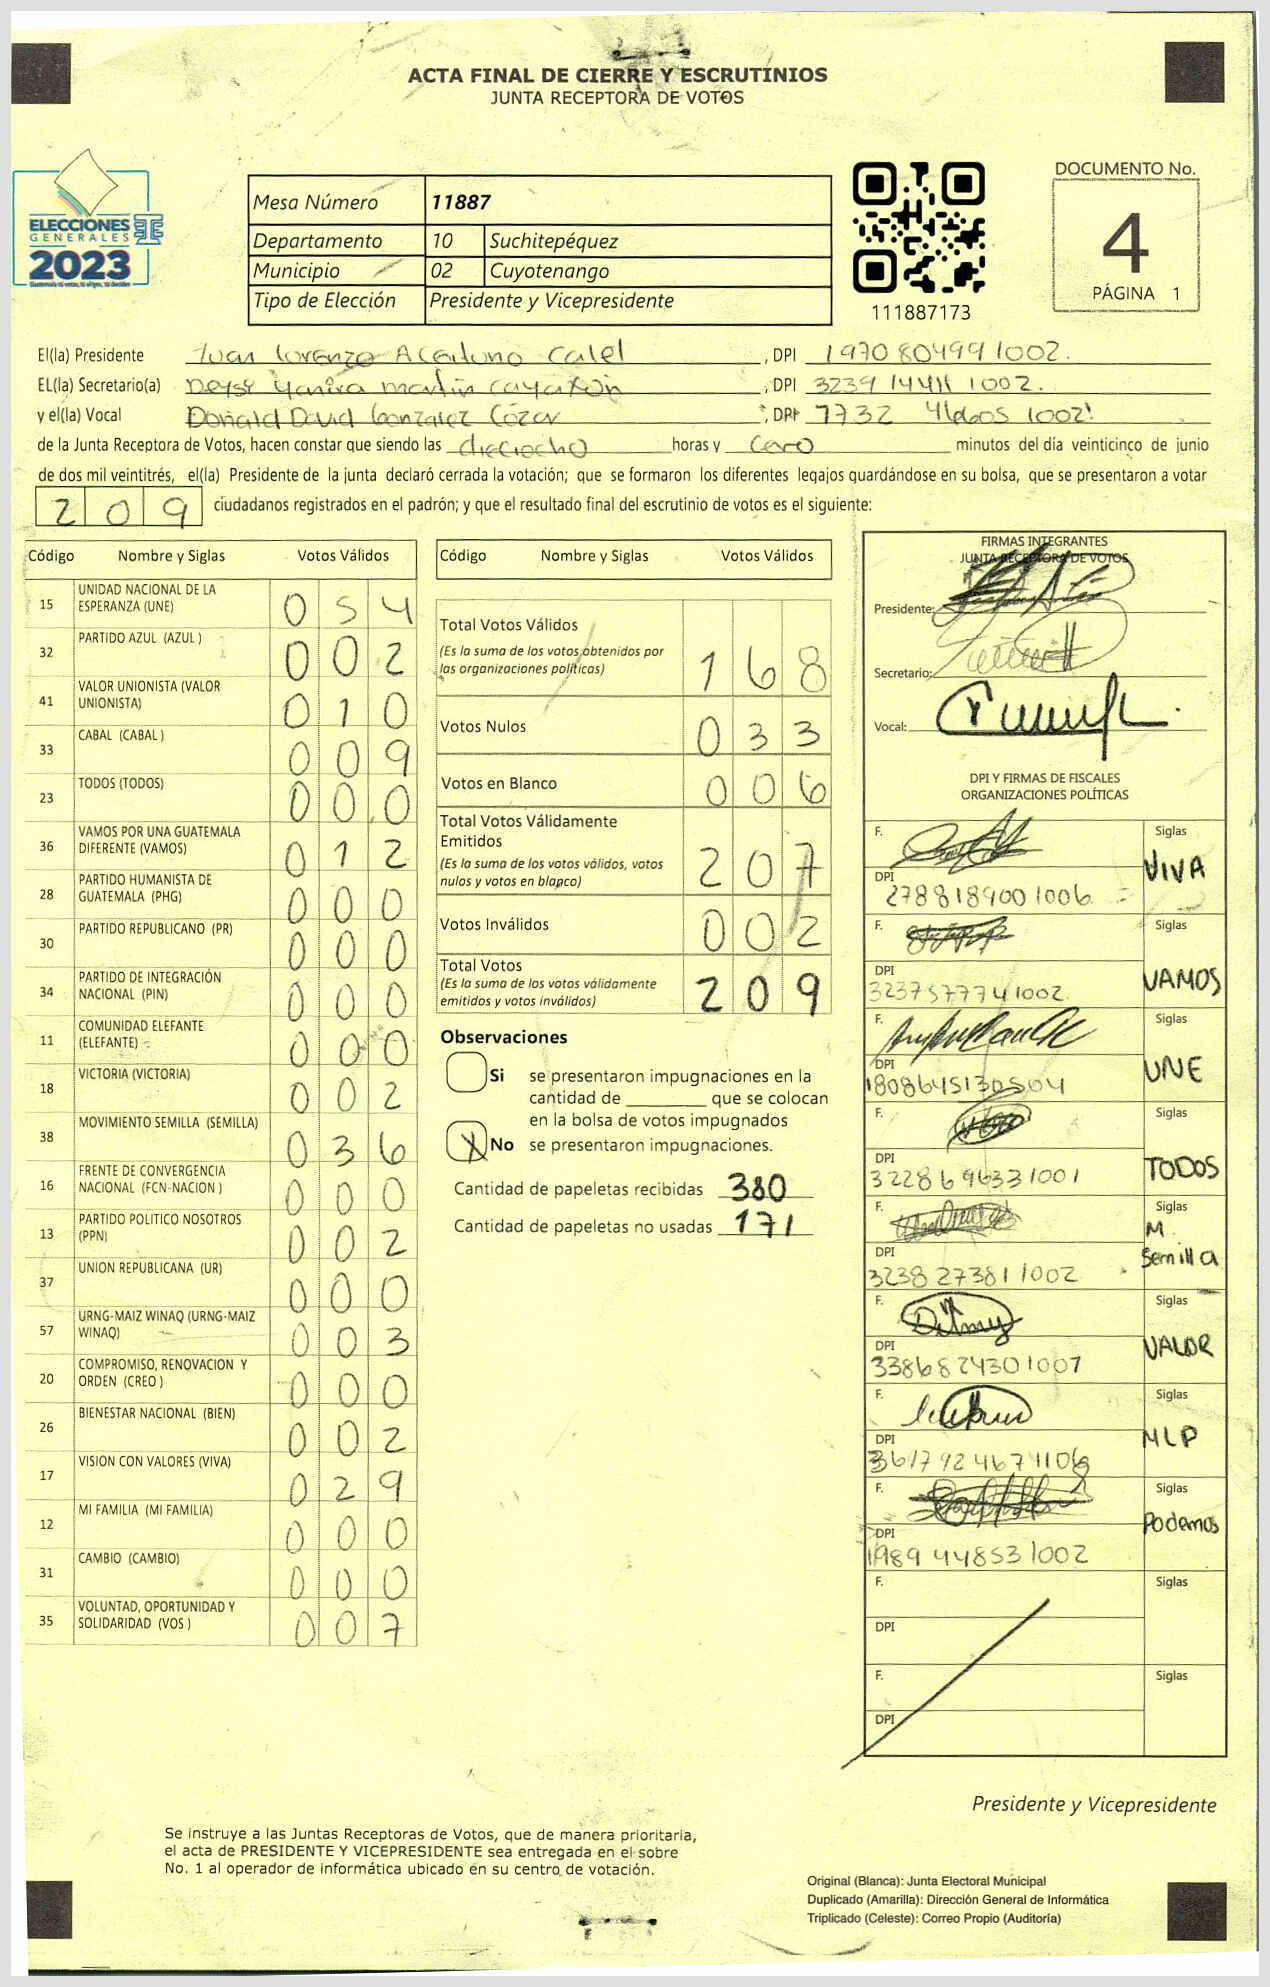 ACTA FINAL DE CIERRE Y ESCRUTINIOS
JUNTA RECEPTORA DE VOTOS
ELECCIONES
GENERALES
2023
Mesa Número 11887
Departamento 10 Suchitepéquez
Municipio 02 Cuyotenango
Tipo de Elección Presidente y Vicepresidente
111887173
DOCUMENTO No.
4
PÁGINA 1
El(la) Presidente Juan Lorenzo Aceituno Calel, DPI 1970804991002.
EL(la) Secretario(a) Deysi Yanira Martín, DPI 3239 14411 1002.
y el(la) Vocal Donald David Gonzalez Cózar, DPI 7732 46605 1002
de la Junta Receptora de Votos, hacen constar que siendo las dieciocho horas y cero minutos del día veinticinco de junio
de dos mil veintitrés, el(la) Presidente de la junta declaró cerrada la votación; que se formaron los diferentes legajos guardándose en su bolsa, que se presentaron a votar
209 ciudadanos registrados en el padrón; y que el resultado final del escrutinio de votos es el siguiente:
Código Nombre y Siglas Votos Válidos
15 UNIDAD NACIONAL DE LA ESPERANZA (UNE) 054
32 PARTIDO AZUL (AZUL ) 002
41 VALOR UNIONISTA (VALOR UNIONISTA) 010
33 CABAL (CABAL ) 009
23 TODOS (TODOS) 000
36 VAMOS POR UNA GUATEMALA DIFERENTE (VAMOS) 012
28 PARTIDO HUMANISTA DE GUATEMALA (PHG) 000
30 PARTIDO REPUBLICANO (PR) 000
34 PARTIDO DE INTEGRACIÓN NACIONAL (PIN) 000
11 COMUNIDAD ELEFANTE (ELEFANTE) 000
18 VICTORIA (VICTORIA) 002
38 MOVIMIENTO SEMILLA (SEMILLA) 036
16 FRENTE DE CONVERGENCIA NACIONAL (FCN-NACION ) 000
13 PARTIDO POLITICO NOSOTROS (PPN) 002
37 UNION REPUBLICANA (UR) 000
57 URNG-MAIZ WINAQ (URNG-MAIZ WINAQ) 003
20 COMPROMISO, RENOVACION Y ORDEN (CREO ) 000
26 BIENESTAR NACIONAL (BIEN) 002
17 VISION CON VALORES (VIVA) 029
12 MI FAMILIA (MI FAMILIA) 000
31 CAMBIO (CAMBIO) 000
35 VOLUNTAD, OPORTUNIDAD Y SOLIDARIDAD (VOS ) 007
Código Nombre y Siglas Votos Válidos
Total Votos Válidos
(Es la suma de los votos obtenidos por
las organizaciones políticas) 168
Votos Nulos 033
Votos en Blanco 006
Total Votos Válidamente
Emitidos
(Es la suma de los votos válidos, votos
nulos y votos en blanco) 207
Votos Inválidos 002
Total Votos
(Es la suma de los votos válidamente
emitidos y votos inválidos) 209
Observaciones
Si se presentaron impugnaciones en la
cantidad de ________ que se colocan
en la bolsa de votos impugnados
X No se presentaron impugnaciones.
Cantidad de papeletas recibidas 380
Cantidad de papeletas no usadas 171
FIRMAS INTEGRANTES
JUNTA RECEPTORA DE VOTOS
Presidente:
Secretario:
Vocal:
DPI Y FIRMAS DE FISCALES
ORGANIZACIONES POLÍTICAS
F. Siglas
VIVA
DPI
2788189001006
F. Siglas
VAMOS
DPI
3237577741002
F. Siglas
UNE
DPI
1808645130504
F. Siglas
TODOS
DPI
3228696331001
F. Siglas
M.
Semilla
DPI
3238273811002
F. Siglas
VALOR
DPI
3386824301007
F. Siglas
MLP
DPI
3617924671106
F. Siglas
Podemos
DPI
1989448531002
F. Siglas
DPI
F. Siglas
DPI
Presidente y Vicepresidente
Se instruye a las Juntas Receptoras de Votos, que de manera prioritaria,
el acta de PRESIDENTE Y VICEPRESIDENTE sea entregada en el sobre
No. 1 al operador de informática ubicado en su centro de votación.
Original (Blanca): Junta Electoral Municipal
Duplicado (Amarilla): Dirección General de Informática
Triplicado (Celeste): Correo Propio (Auditoría)